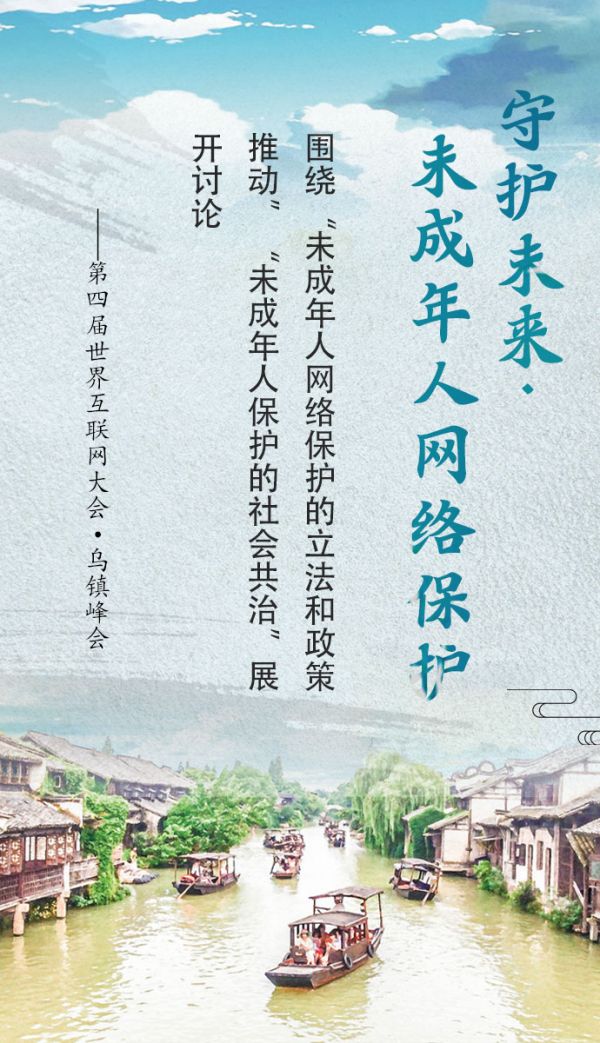 守护未来·
未成年人网络保护
围绕“未成年人网络保护的立法和政策
推动”“未成年人保护的社会共治”展
开讨论
——第四届世界互联网大会·乌镇峰会